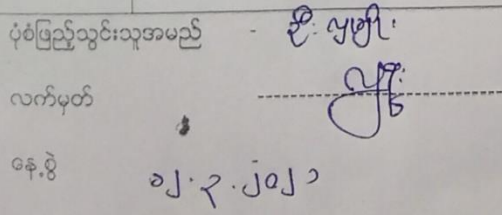 ပုံစံဖြည့်သွင်းသူအမည် - ဦး
လက်မှတ်
နေ့စွဲ ၁၂.၃.၂၀၂၁